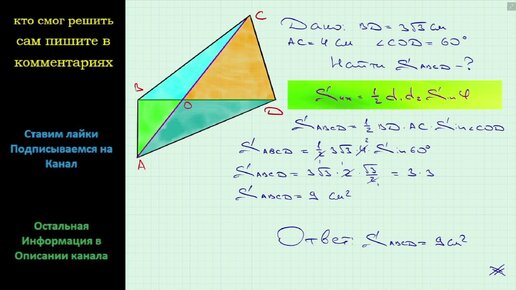 кто смог решить
сам пишите в
комментариях
Ставим лайки
Подписываемся на
Канал
Остальная
Информация в
Описании канала
C
B
O
D
A
Дано: BD = 3√3 см
AC = 4 см ∠COD = 60°
Найти S ABCD - ?
S = 1/2 d₁ d₂ Sin φ
S ABCD = 1/2 BD · AC · Sin ∠COD
S ABCD = 1/2 3√3 · 4 · Sin 60°
S ABCD = 3√3 · 2 · √3/2 = 3 · 3
S ABCD = 9 см²
Ответ: S ABCD = 9 см²